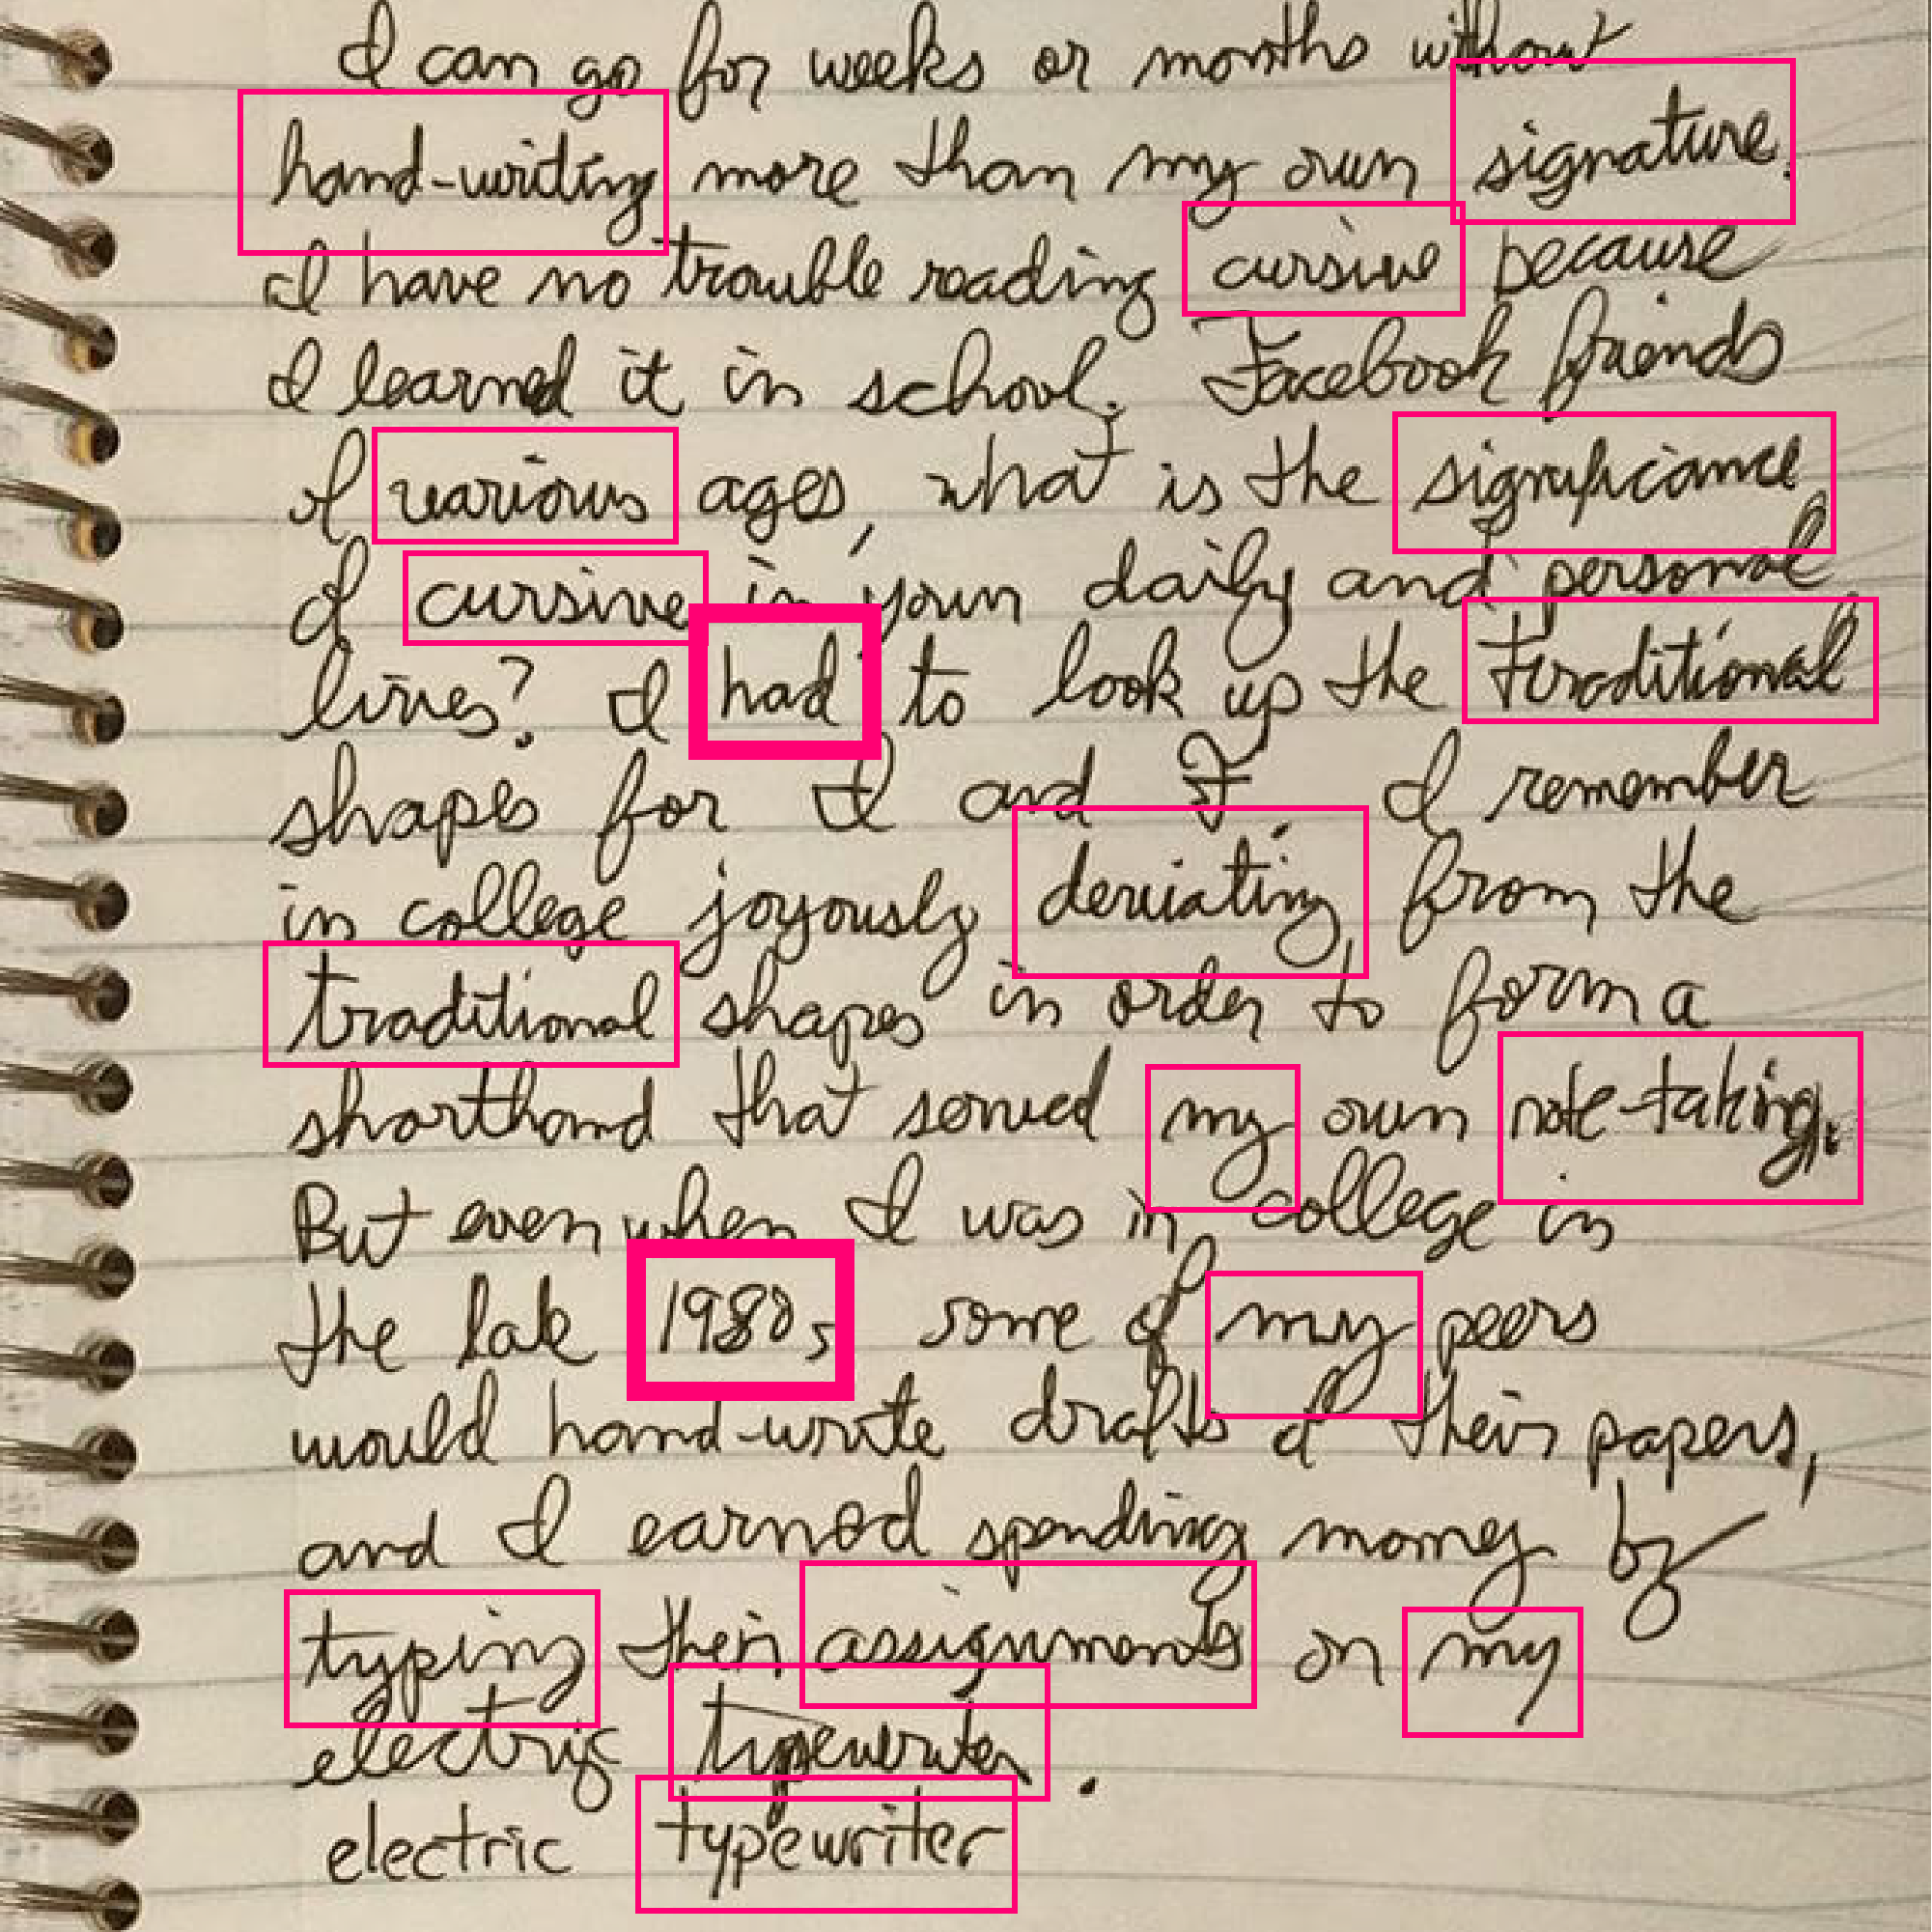 I can go for weeks or months without
hand-writing more than my own signature.
I have no trouble reading cursive because
I learned it in school. Facebook friends
of various ages, what is the significance
of cursive in your daily and personal
lives? I had to look up the traditional
shapes for I and F. I remember
in college joyously deviating from the
traditional shapes in order to form a
shorthand that served my own note-taking.
But even when I was in college in
the late 1980s some of my peers
would hand-write drafts of their papers,
and I earned spending money by
typing their assignments on my
electric typewriter.
electric typewriter